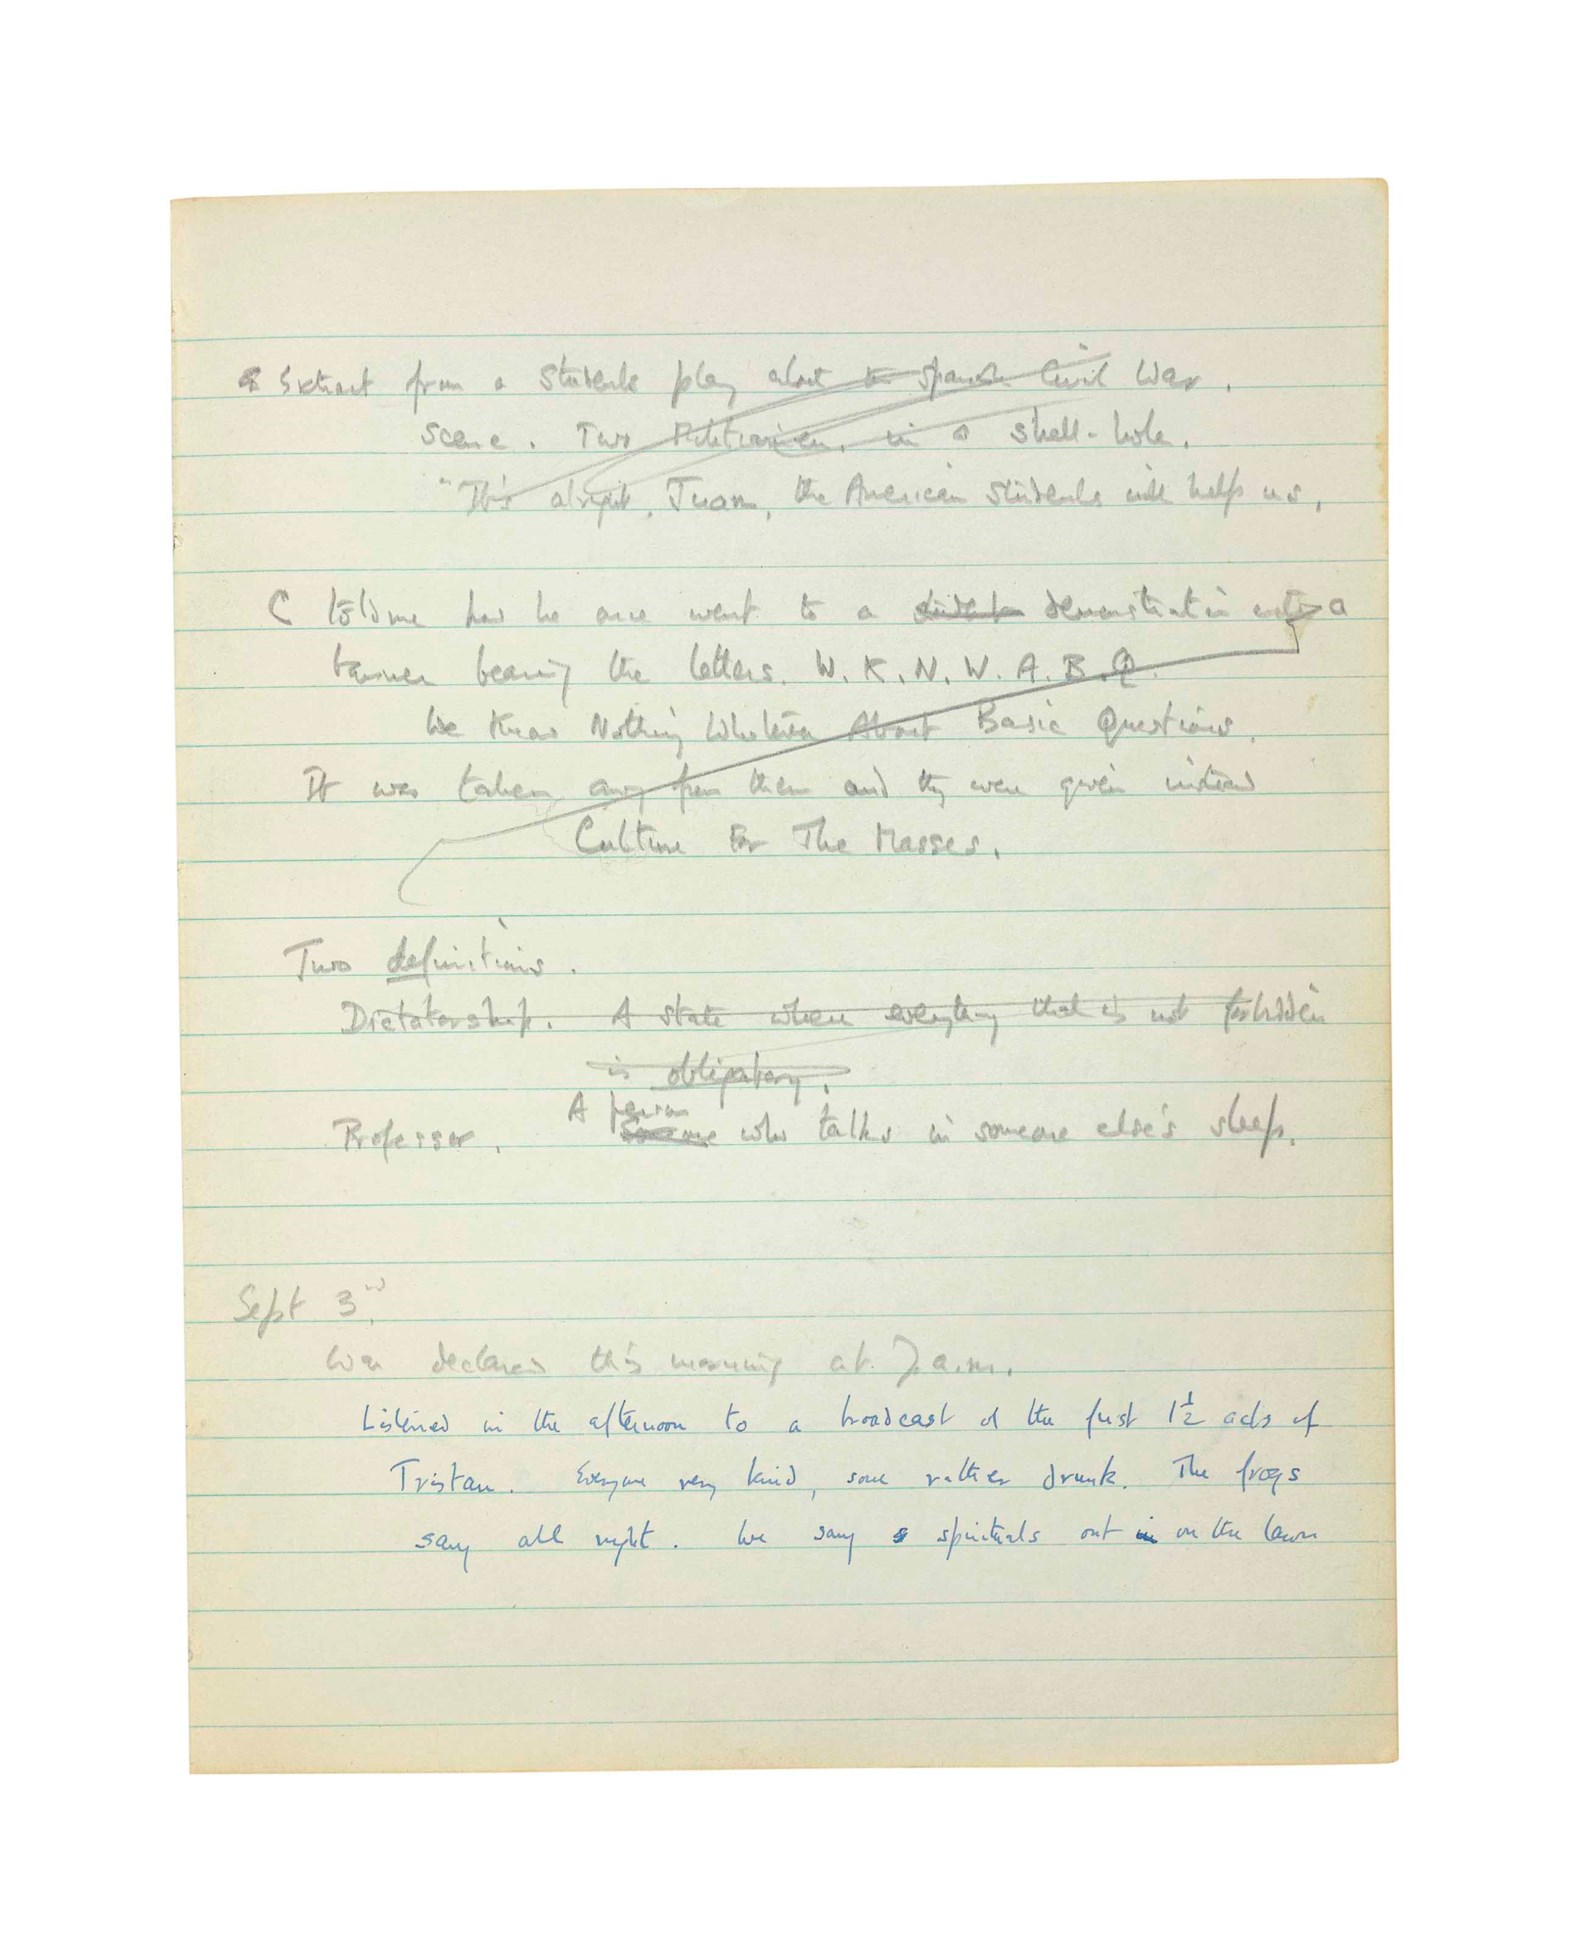 Extract from a Students play about the Spanish Civil War.
Scene. Two Militiamen, in a shell-hole.
"It's alright, Juan, the American Students will help us,
C told me how he once went to a student demonstration with a
banner bearing the letters. W. K. N. W. A. B. Q.
We Know Nothing Whatever About Basic Questions.
It was taken away from them and they were given instead
Culture For The Masses.
Two definitions.
Dictatorship. A state where everything that is not forbidden
is obligatory.
A person
Professor. Someone who talks in someone else's sleep.
Sept 3rd.
War declared this morning at 7. a.m.
Listened in the afternoon to a broadcast of the first 1½ acts of
Tristan. Everyone very kind, some rather drunk. The frogs
sang all night. We sang s spirituals out in on the lawn